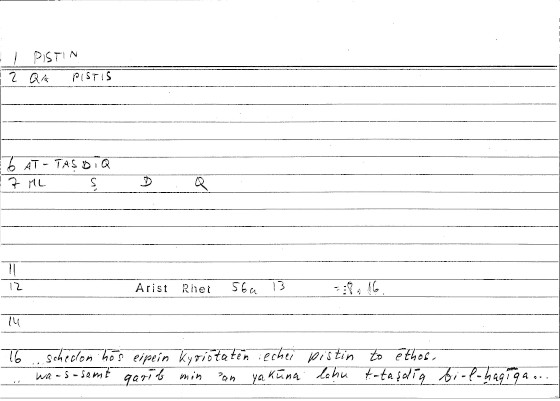 1 PISTIN
2 QA PISTIS
6 AT-TAṢDĪQ
7 ML Ṣ D Q
11
12 Arist Rhet 56a 13 = 8, 16.
14
16 .. schedon hōs eipein kyriōtatēn echei pistin to ēthos.
.. wa-s-samt qarīb min ʾan yakūna lahu t-taṣdīq bi-l-ḥaqīqa...